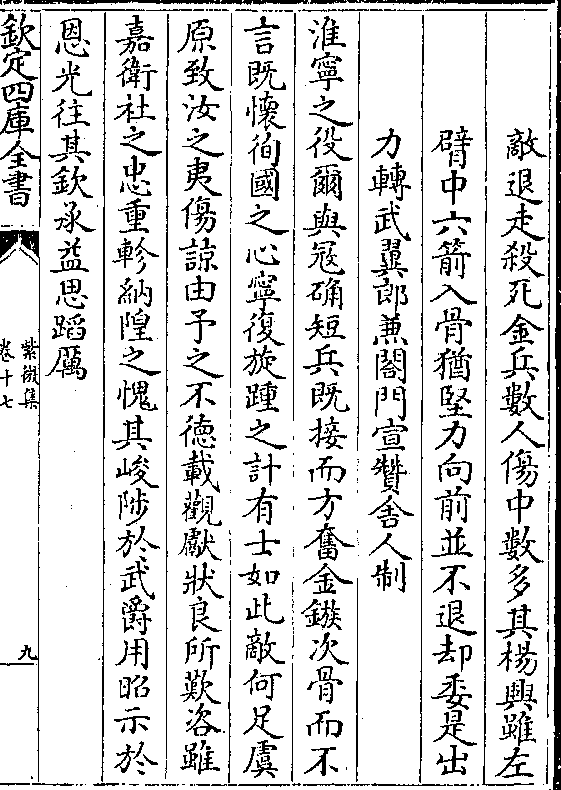 敵退走殺死金兵數人傷中數多其楊興雖左
臂中六箭入骨猶堅力向前並不退却委是出
力轉武翼郎兼閤門宣贊舍人制
淮寧之役爾與冦确短兵既接而方奮金鏃次骨而不
言既懷徇國之心寧復旋踵之計有士如此敵何足虞
原致汝之夷傷諒由予之不德載觀獻狀良所歎咨雖
嘉衛社之忠重軫納隍之愧其峻陟於武爵用昭示於
恩光往其欽承益思蹈厲
欽定四庫全書
紫微集
卷十七
九